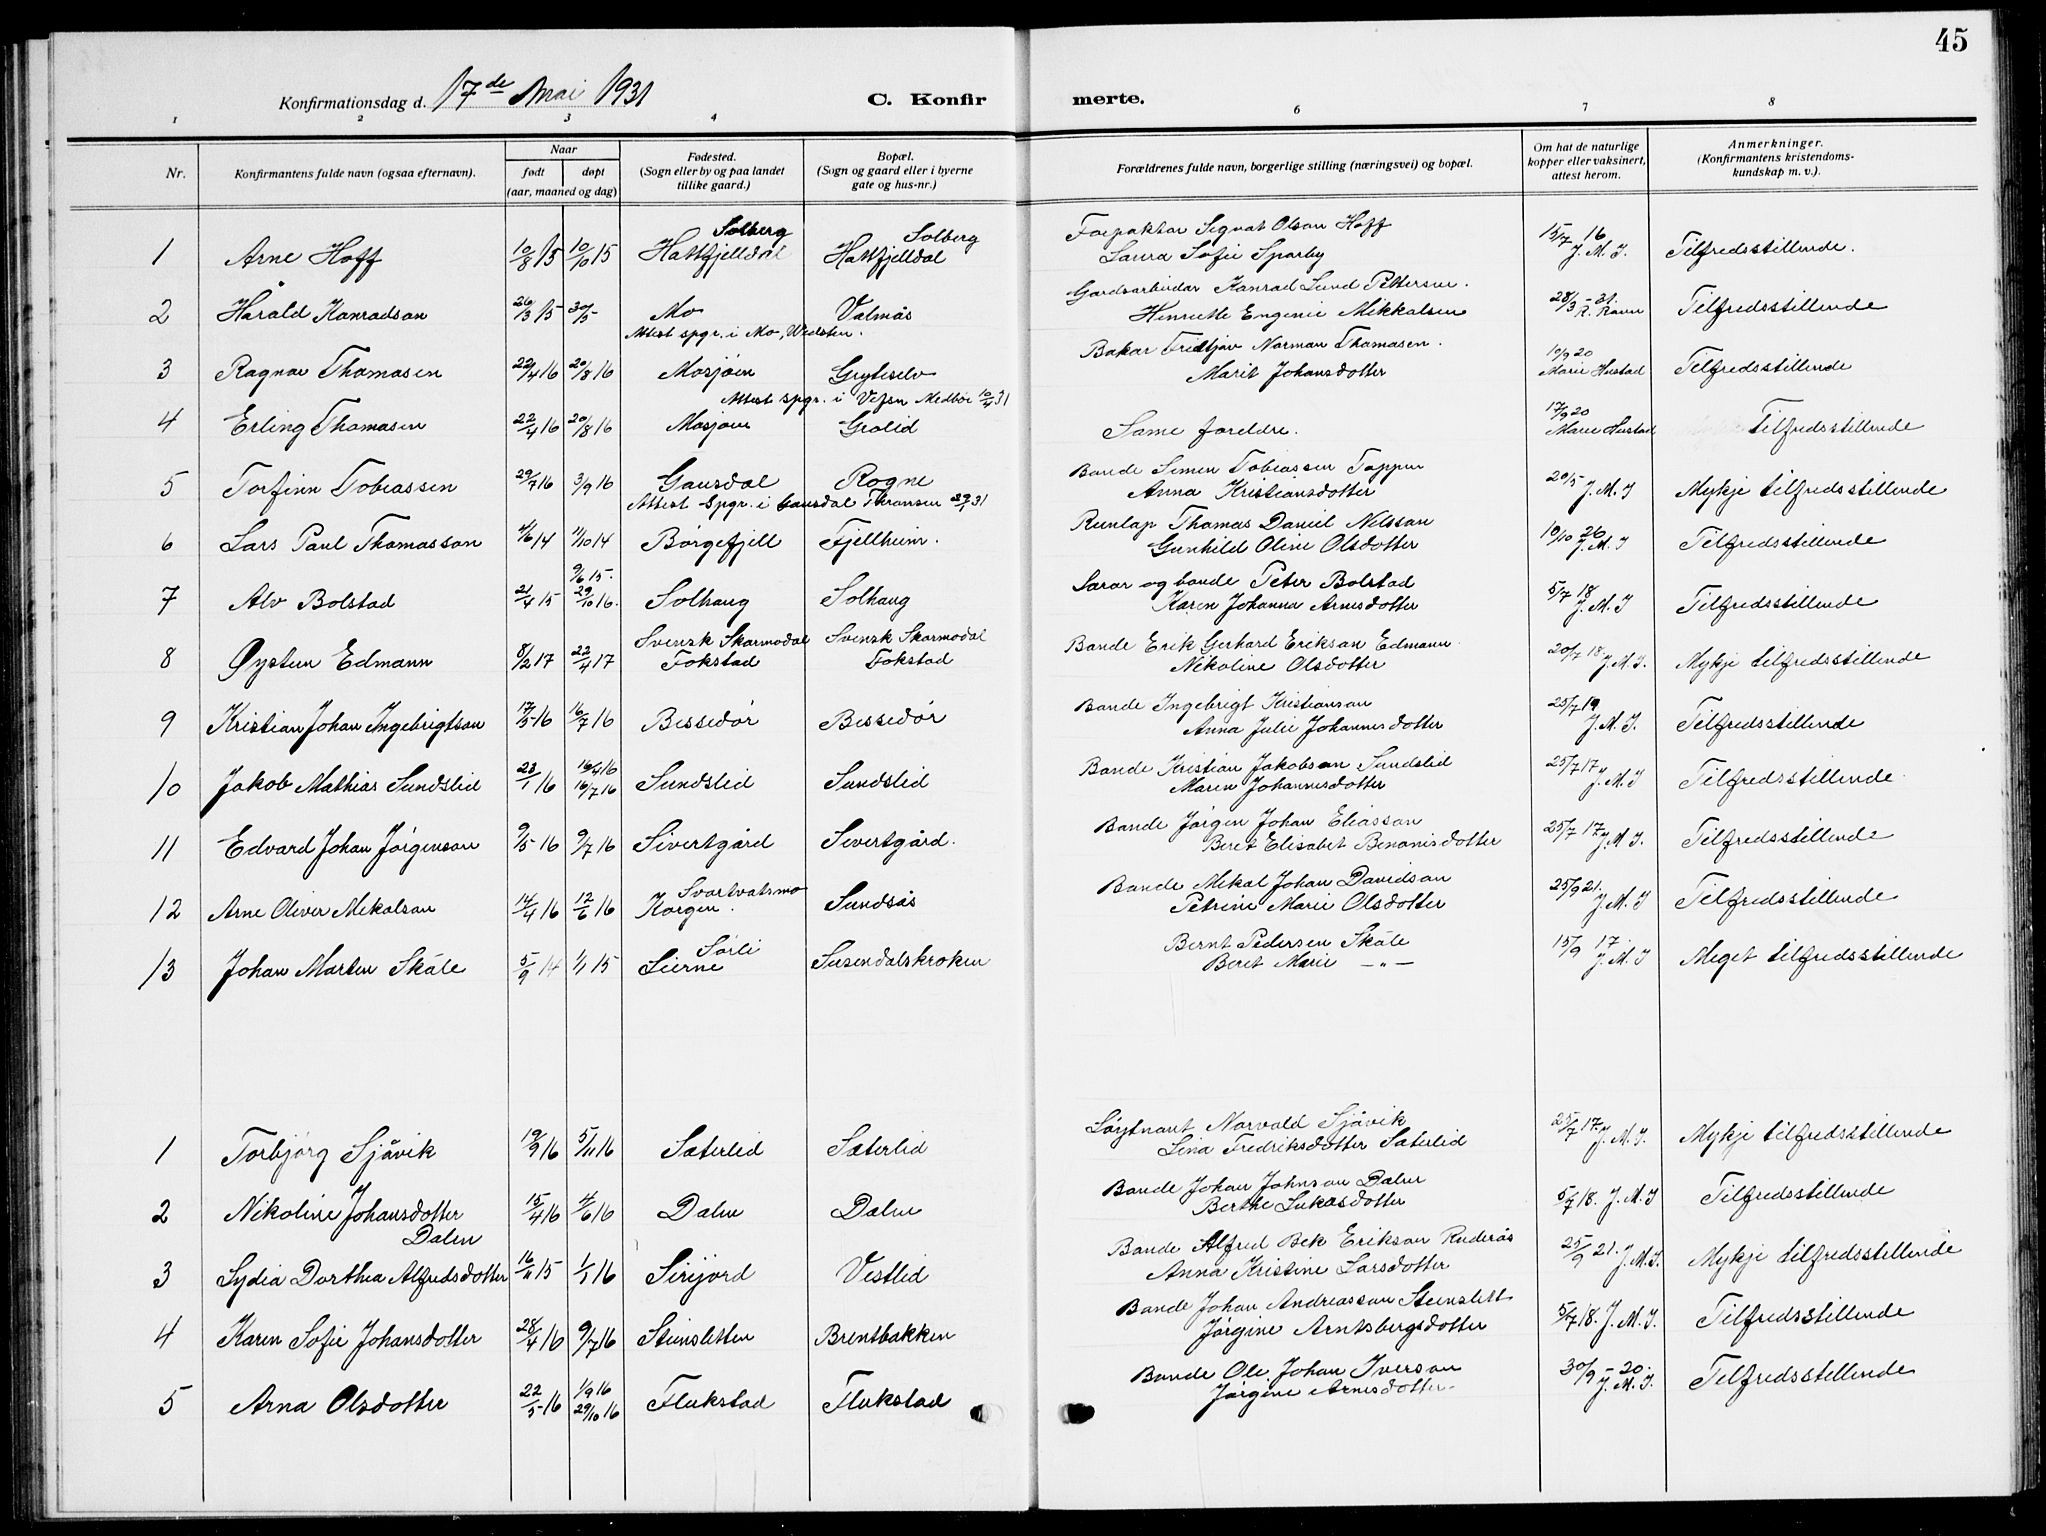 45
Konfirmationsdag d. 17de Mai 1931 C. Konfirmerte.
1 2 3 4 6 7 8
Nr. Konfirmantens fulde navn (ogsaa efternavn). Naar født døpt (aar, maaned og dag) Fødested. (Sogn eller by og paa landet tillike gaard.) Bopæl. (Sogn og gaard eller i byerne gate og hus-nr.) Forældrenes fulde navn, borgerlige stilling (næringsvei) og bopæl. Om hat de naturlige kopper eller vaksinert, attest herom. Anmerkninger. (Konfirmantens kristendomskundskap m. v.).
Solberg Solberg Forpaktar Sigvat Olson Hoff 15/7 16
1 Arne Hoff 10/8 15 10/10 15 Hattfjelldal Hattfjelldal Laura Sofie Sparby J. M. I. Tilfredsstillende.
Gardsarbeidar Konrad Lund Pettersen.
2 Harald Konradson 26/3 15 30/5 Mo Valmås Henriette Eugenie Mikkalsen 28/3 - 31. R. Ravn Tilfredsstillende
Attest spgr. i Mo,
Bakar Fridtjov Norman Thomasen. 10/9 20
3 Ragnar Thomasen 22/4 16 20/8 16 Mosjøen Grytselv Marit Johansdotter Marie Hustad Tilfredsstillende
Attest spgr. i Vefsn Medbøe 10/4 31
17/9 20
4 Erling Thomasen 22/4 16 20/8 16 Mosjøen Grolid Same foreldre. Marie Hustad Tilfredsstillende
Bonde Simen Tobiassen Toppen
5 Torfinn Tobiassen 29/7 16 3/9 16 Gausdal Rogne Anna Kristiansdotter 20/5 J. M. I Mykje tilfredsstillende
Attest Spgr. i Gausdal
Runlap Thomas Daniel Nilsson
6 Lars Paul Thomasson 4/6 14 11/10 14 Børgefjell Fjellheim. Gunhild Oline Olsdotter 10/10 26 J. M. I Tilfredsstillende
9/6 15. Lærar og bonde Peter Bolstad
7 Alv Bolstad 21/4 15 29/10 16. Solhaug Solhaug Karen Johanna Arnesdotter 5/7 18 J. M. I Tilfredsstillende
Svensk Skarmodal Svensk Skarmodal Bonde Erik Gerhard Erikson Edmann
8 Øystein Edmann 8/2 17 22/4 17 Fokstad Fokstad Nikoline Olsdotter 20/7 18 J. M. I. Mykje tilfredsstillende
Bonde Ingebrigt Kristianson 25/7 19
9 Kristian Johan Ingebrigtson 17/5 16 16/7 16 Bessedør Bessedør Anna Julie Johannesdotter J. M. I. Tilfredsstillende
16/4 16 Bonde Kristian Jakobson Sundslid
10 Jakob Mathias Sundslid 23/1 16 16/7 16 Sundslid Sundslid Maren Johannesdotter 25/7 17 J. M. I Tilfredsstillende
Bonde Jørgen Johan Eliasson
11 Edvard Johan Jørgenson 9/5 16 9/7 16 Sivertgård Sivertgård. Beret Elisabet Benonisdotter 25/7 17 J. M I. Tilfredsstillende
Svartvatsmo Bonde Mikal Johan Davidson
12 Arne Oliver Mikalson 14/4 16 12/6 16 Korgen. Sundsås Petrine Marie Olsdotter 25/9 21. J. M. I Tilfredsstillende
Sørli Bernt Pedersen Skåle 15/9 17
13 Johan Marten Skåle 5/9 14 1/1 15 Lierne Susendalskroken Beret Marie —"— J. M. I Meget tilfredsstillende
Løytnant Norvald Sjåvik
1 Torbjørg Sjåvik 19/9 16 5/11 16 Sæterlid Sæterlid Lina Fredriksdotter Sæterlid 25/7 17 J. M. I. Mykje tilfredsstillende
Bonde Johan Johnson Dalen
2 Nikoline Johansdotter Dalen 15/4 16 4/6 16 Dalen Dalen Berthe Lukasdotter 5/7 18. J. M. I Tilfredsstillende
Bonde Alfred Bek Erikson Ruderås
3 Sydia Dorthea Alfredsdotter 16/11 15 1/1 16 Sirijord Vestlid Anna Kristine Larsdotter 25/9 21. J. M. I. Mykje tilfredsstillende
Bonde Johan Andreasson Steinslett
4 Karen Sofie Johansdotter 28/4 16 9/7 16 Steinsletten Brentbakken Jørgine Arntsbergsdotter 5/7 18. J. M. I. Tilfredsstillende
1/9 16 Bonde Ole Johan Iverson
5 Arna Olsdotter 22/5 16 29/10 16 Flukstad Flukstad Jørgine Arnesdotter 30/9 - 20. J. M. I. Tilfredsstillende